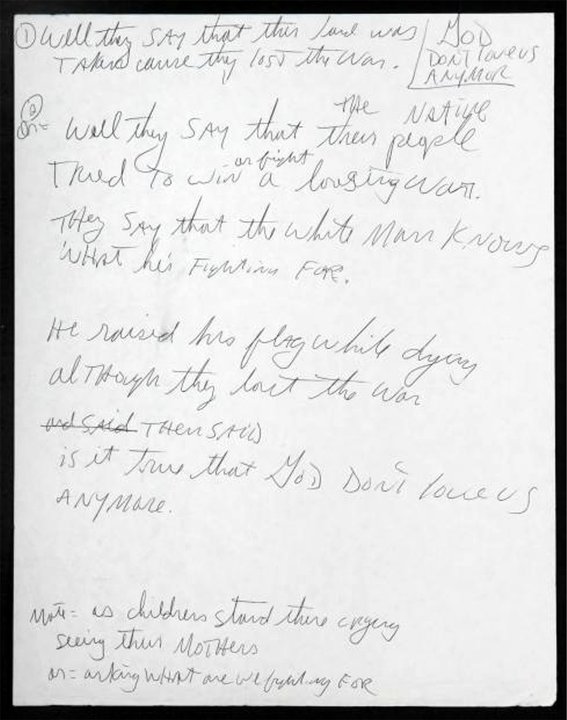 ① Well they SAY that this land was
TAKEN cause they lost the war.
GOD
DON'T love us
ANYMOR
②
or= Well they SAY that their people
THE NATIVE
TRIED TO WIN a loosing war.
or fight
They SAY that the white Man KNOWS
WHAT he's FighTing FOR.
He raised his flag while dying
alTHough they lost the war
and SAID THEN SAID
is it True that GOD DON'T love US
ANYMORE.
Note= as children stand there crying
seeing their MOTHERS
or= asking WHAT are we fighting FOR